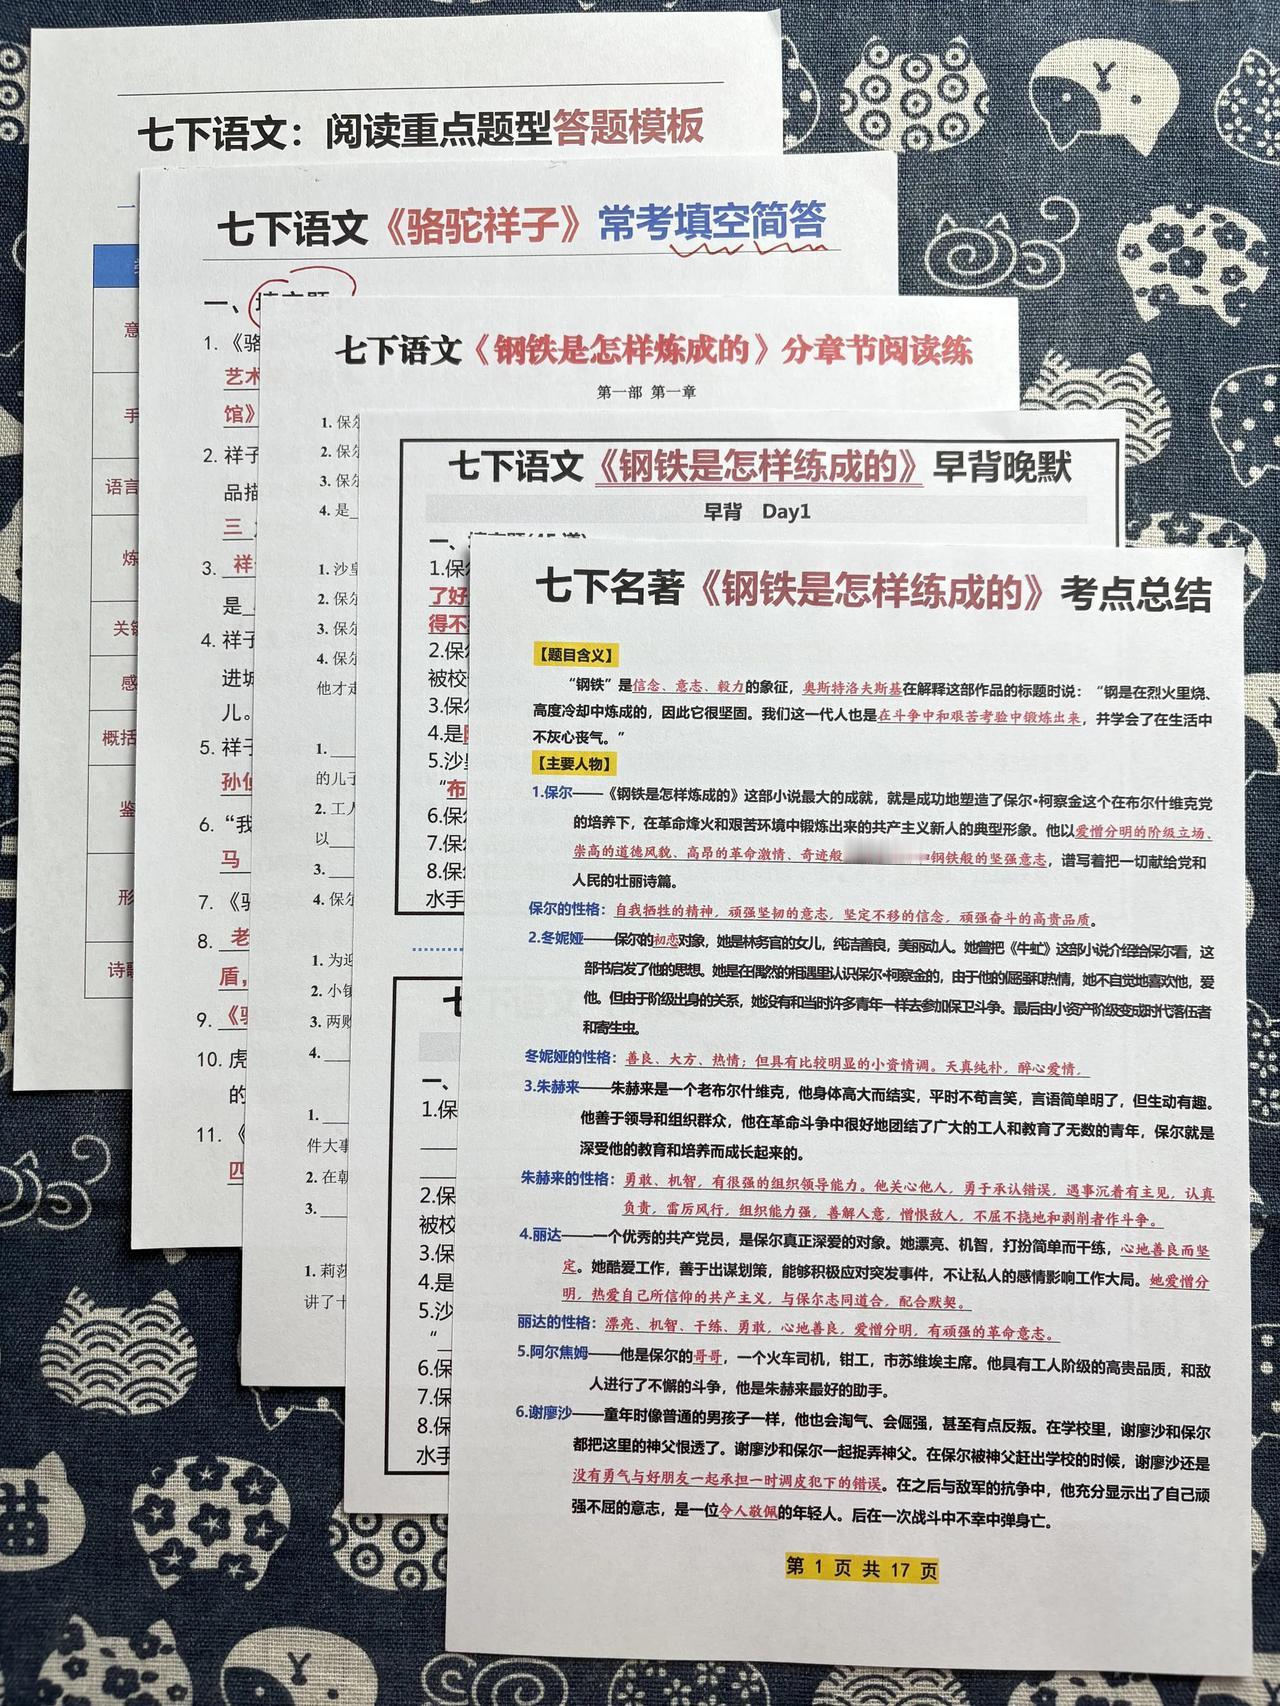 七下语文：阅读重点题型答题模板
一
意
手
语言
炼
关键
感
概括
鉴
形
诗歌
七下语文《骆驼祥子》常考填空简答
一、填空题
1.《骆
艺术
馆》
2. 祥子
品描
三
3. 祥
是
4. 祥子
进城
儿。
5. 祥子
孙侦
6. “我
马
7.《骆
8. 老
盾，
9.《骆
10. 虎
的
11.《
四
七下语文《钢铁是怎样炼成的》分章节阅读练
第一部 第一章
1. 保尔
2. 保尔
3. 保尔
4. 是
1. 沙皇
2. 保尔
3. 保尔
4. 保尔
他才走
1.
的儿子
2. 工人
以
3.
4. 保尔
1. 为迎
2. 小镇
3. 两败
4.
1.
件大事
2. 在朝
3.
1. 莉莎
讲了十
七下语文《钢铁是怎样练成的》早背晚默
早背 Day1
一、填空题(45道)
1.保尔
了好
得不
2.保尔
被校
3.保尔
4.是
5.沙皇
“布
6.保尔
7.保尔
8.保尔
水手
七
一、
1.保
2.保
被校
3.保
4.是
5.沙
“
6.保
7.保
8.保
水手
七下名著《钢铁是怎样练成的》考点总结
【题目含义】
“钢铁”是信念、意志、毅力的象征，奥斯特洛夫斯基在解释这部作品的标题时说：“钢是在烈火里烧、
高度冷却中炼成的，因此它很坚固。我们这一代人也是在斗争中和艰苦考验中锻炼出来，并学会了在生活中
不灰心丧气。”
【主要人物】
1.保尔——《钢铁是怎样炼成的》这部小说最大的成就，就是成功地塑造了保尔·柯察金这个在布尔什维克党
的培养下，在革命烽火和艰苦环境中锻炼出来的共产主义新人的典型形象。他以爱憎分明的阶级立场、
崇高的道德风貌、高昂的革命激情、奇迹般 钢铁般的坚强意志，谱写着把一切献给党和
人民的壮丽诗篇。
保尔的性格：自我牺牲的精神，顽强坚韧的意志，坚定不移的信念，顽强奋斗的高贵品质。
2.冬妮娅——保尔的初恋对象，她是林务官的女儿，纯洁善良，美丽动人。她曾把《牛虻》这部小说介绍给保尔看，这
部书启发了他的思想。她是在偶然的相遇里认识保尔·柯察金的，由于他的倔强和热情，她不自觉地喜欢他，爱
他。但由于阶级出身的关系，她没有和当时许多青年一样去参加保卫斗争。最后由小资产阶级变成时代落伍者
和寄生虫。
冬妮娅的性格：善良、大方、热情；但具有比较明显的小资情调。天真纯朴，醉心爱情，
3.朱赫来——朱赫来是一个老布尔什维克，他身体高大而结实，平时不苟言笑，言语简单明了，但生动有趣。
他善于领导和组织群众，他在革命斗争中很好地团结了广大的工人和教育了无数的青年，保尔就是
深受他的教育和培养而成长起来的。
朱赫来的性格：勇敢、机智，有很强的组织领导能力。他关心他人，勇于承认错误，遇事沉着有主见，认真
负责，雷厉风行，组织能力强，善解人意，憎恨敌人，不屈不挠地和剥削者作斗争。
4.丽达——一个优秀的共产党员，是保尔真正深爱的对象。她漂亮、机智，打扮简单而干练，心地善良而坚
定。她酷爱工作，善于出谋划策，能够积极应对突发事件，不让私人的感情影响工作大局。她爱憎分
明，热爱自己所信仰的共产主义，与保尔志同道合，配合默契。
丽达的性格：漂亮、机智、干练、勇敢，心地善良，爱憎分明，有顽强的革命意志。
5.阿尔焦姆——他是保尔的哥哥，一个火车司机，钳工，市苏维埃主席。他具有工人阶级的高贵品质，和敌
人进行了不懈的斗争，他是朱赫来最好的助手。
6.谢廖沙——童年时像普通的男孩子一样，他也会淘气、会倔强，甚至有点反叛。在学校里，谢廖沙和保尔
都把这里的神父恨透了。谢廖沙和保尔一起捉弄神父。在保尔被神父赶出学校的时候，谢廖沙还是
没有勇气与好朋友一起承担一时调皮犯下的错误。在之后与敌军的抗争中，他充分显示出了自己顽
强不屈的意志，是一位令人敬佩的年轻人。后在一次战斗中不幸中弹身亡。
第 1 页 共 17 页